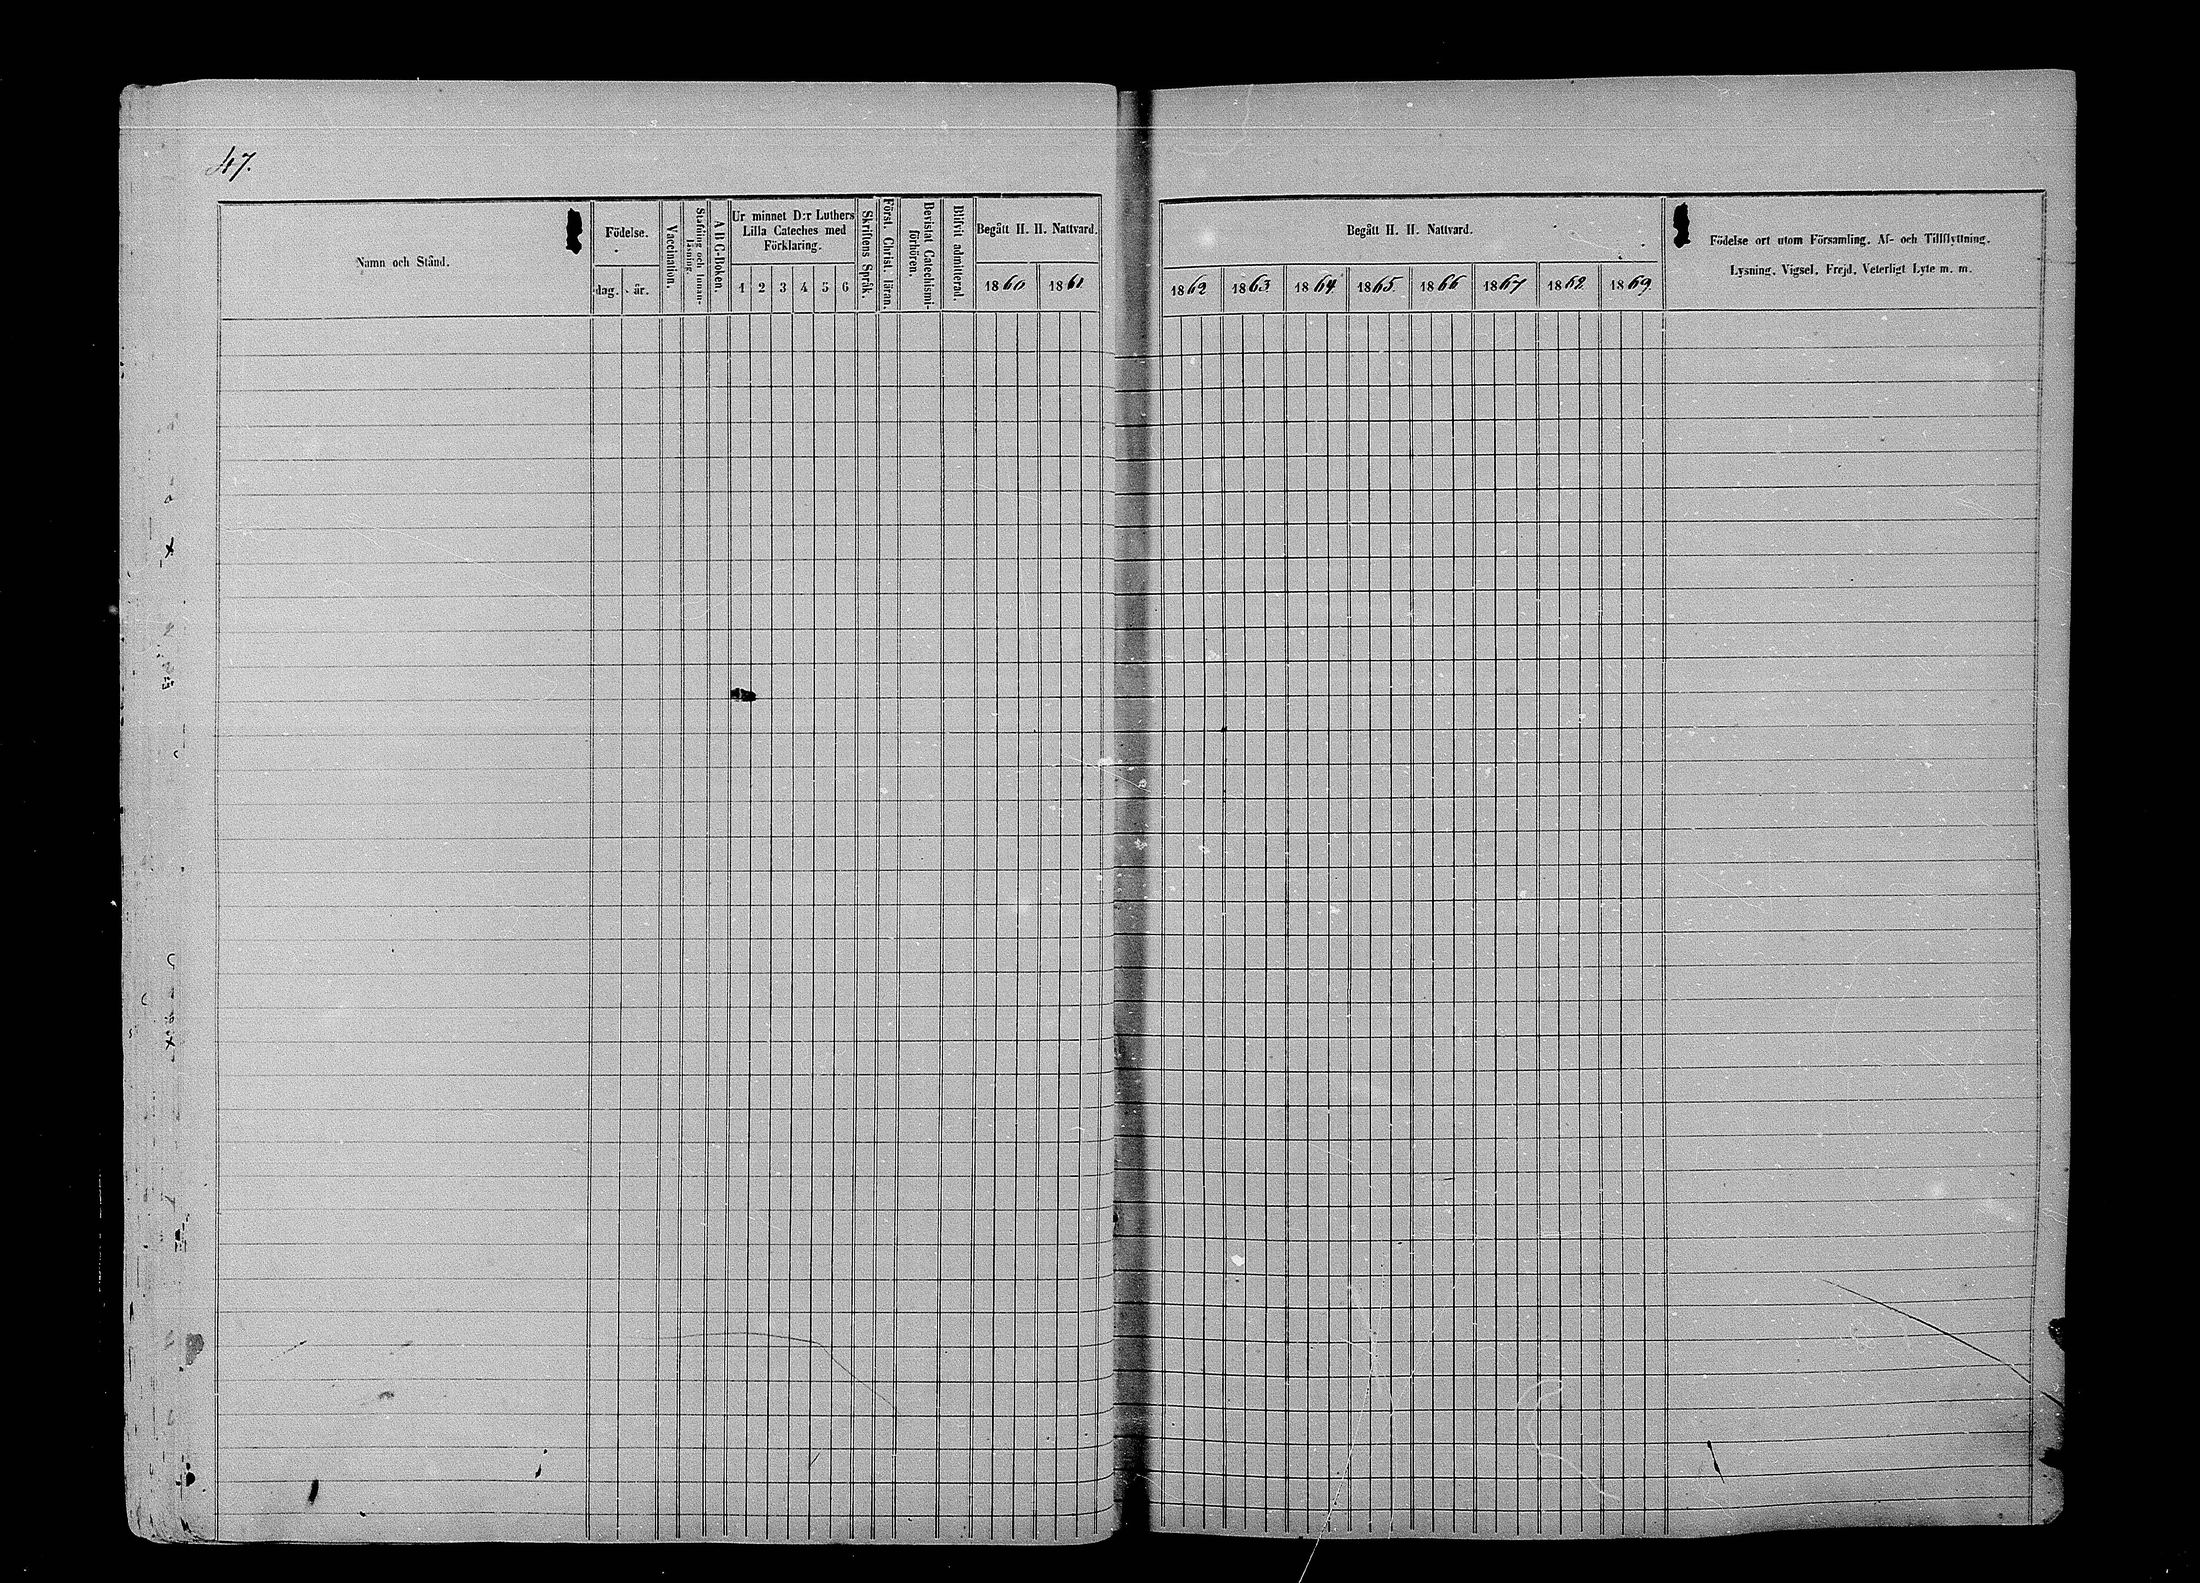 47.
Namn och Stånd.
Födelse.
dag. år.
Vaccination.
Stafning och innan-
läsning.
A B C-Boken.
Ur minnet D:r Luthers
Lilla Cateches med
Förklaring.
1 2 3 4 5 6
Skriftens Språk.
Först. Christ. läran.
Bevistat Catechismi-
förhören.
Blifvit admitterad.
Begått H. H. Nattvard.
1860 1861
Begått H. H. Nattvard.
1862 1863. 1864 1865. 1866 1867 1862. 1869.
Födelse ort utom Församling. Af- och Tillflyttning.
Lysning, Vigsel, Frejd, Veterligt Lyte m. m.